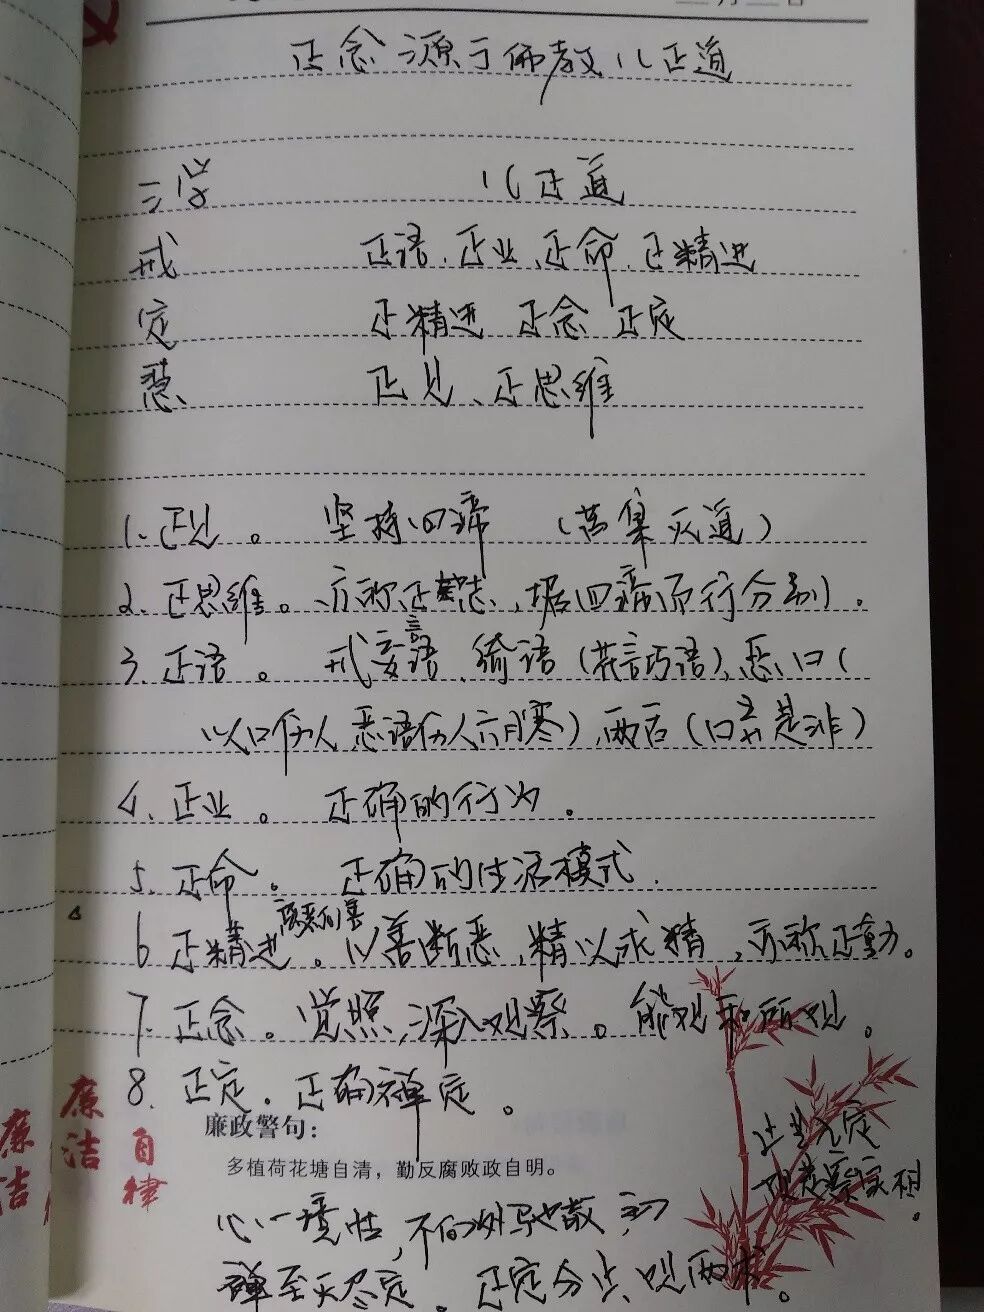 正念源于佛教八正道
三学 八正道
戒 正语、正业、正命、正精进
定 正精进 正念 正定
慧 正见、正思维
1. 正见。 坚持四谛 (苦集灭道)
2. 正思维。亦称正志,据四谛而行分别。
3. 正语。 戒妄语、绮语(花言巧语)、恶口(
以口伤人 恶语伤人六月寒)、两舌(口是非)
4、正业。 正确的行为。
5. 正命。 正确的生活模式.
6 正精进。以善断恶,精以求精,亦称正勤。
7. 正念。觉照,深入观察。能观和所观。
8. 正定。正确禅定。
廉政警句:
多植荷花塘自清,勤反腐败政自明。
止是入定
观是察实相。
心一境性,不向外驰散
禅至灭尽定。正定分止观两
廉洁
自律
廉洁